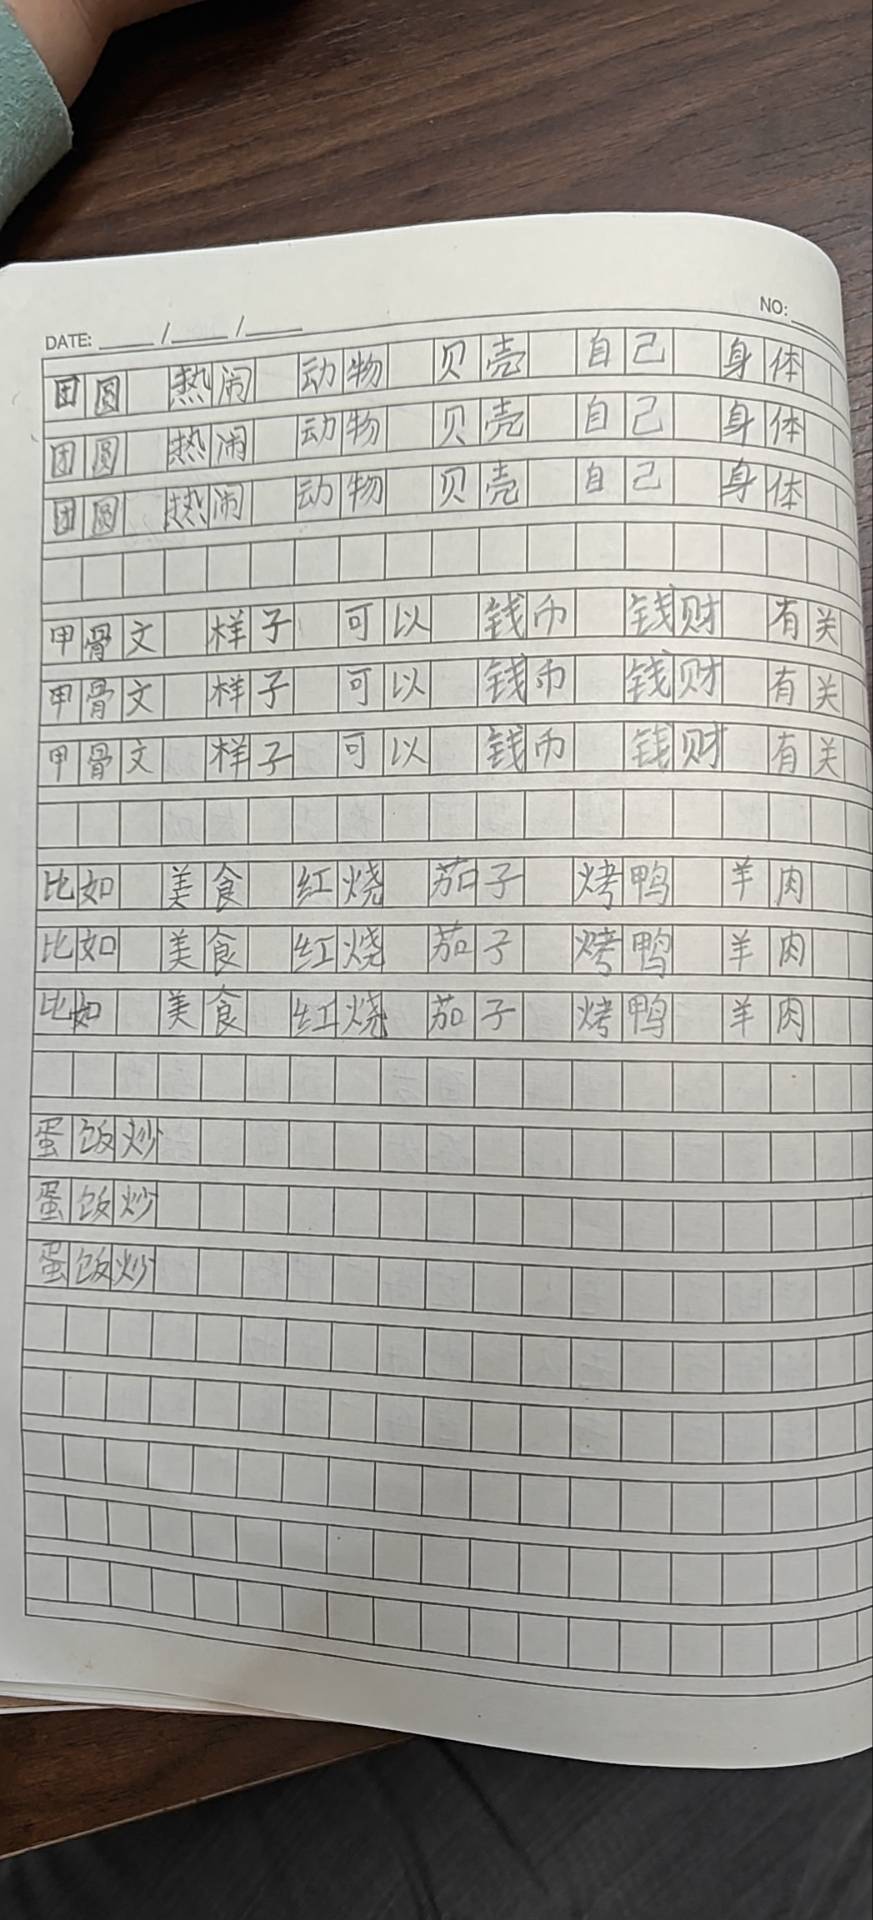 DATE: / / NO:
团圆 热闹 动物 贝壳 自己 身体
团圆 热闹 动物 贝壳 自己 身体
团圆 热闹 动物 贝壳 自己 身体
甲骨文 样子 可以 钱币 钱财 有关
甲骨文 样子 可以 钱币 钱财 有关
甲骨文 样子 可以 钱币 钱财 有关
比如 美食 红烧 茄子 烤鸭 羊肉
比如 美食 红烧 茄子 烤鸭 羊肉
比如 美食 红烧 茄子 烤鸭 羊肉
蛋饭炒
蛋饭炒
蛋饭炒